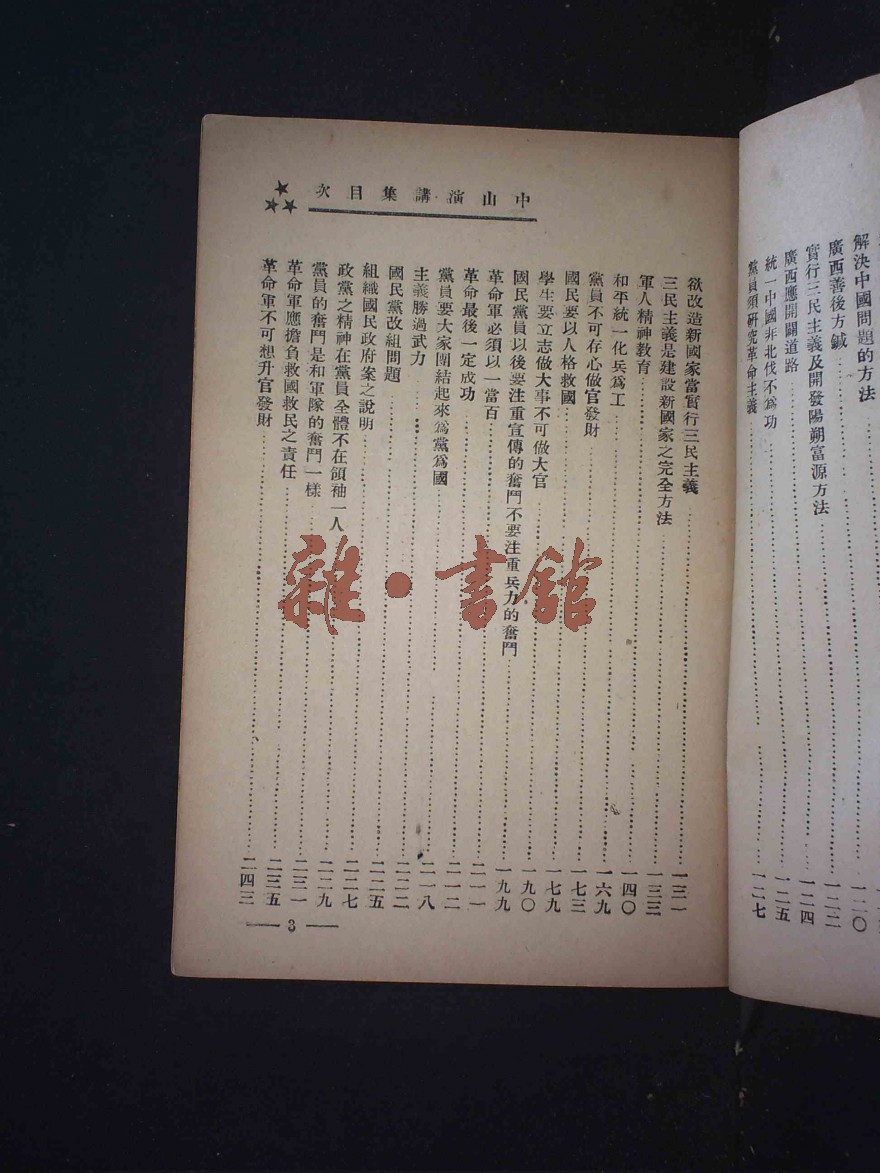 解決中國問題的方法
廣西善後方鍼 一二〇
實行三民主義及開發陽朔富源方法 一二二
廣西應開闢道路 一二四
統一中國非北伐不爲功 一二五
黨員須研究革命主義 一二七
中山演講集目次
欲改造新國家當實行三民主義 一三一
三民主義是建設新國家之完全方法 一三三
軍人精神教育 一四〇
和平統一化兵爲工 一六九
黨員不可存心做官發財 一七三
國民要以人格救國 一七九
學生要立志做大事不可做大官 一九〇
國民黨員以後要注重宣傳的奮鬥不要注重兵力的奮鬥 一九九
革命軍必須以一當百 二一一
革命最後一定成功 二一二
黨員要大家團結起來爲黨爲國 二一八
主義勝過武力 二二二
國民黨改組問題 二二五
組織國民政府案之說明 二二七
政黨之精神在黨員全體不在領袖一人 二二九
黨員的奮鬥是和軍隊的奮鬥一樣 二三一
革命軍應擔負救國救民之責任 二三五
革命軍不可想升官發財 二四三
— 3 —
雜·書館